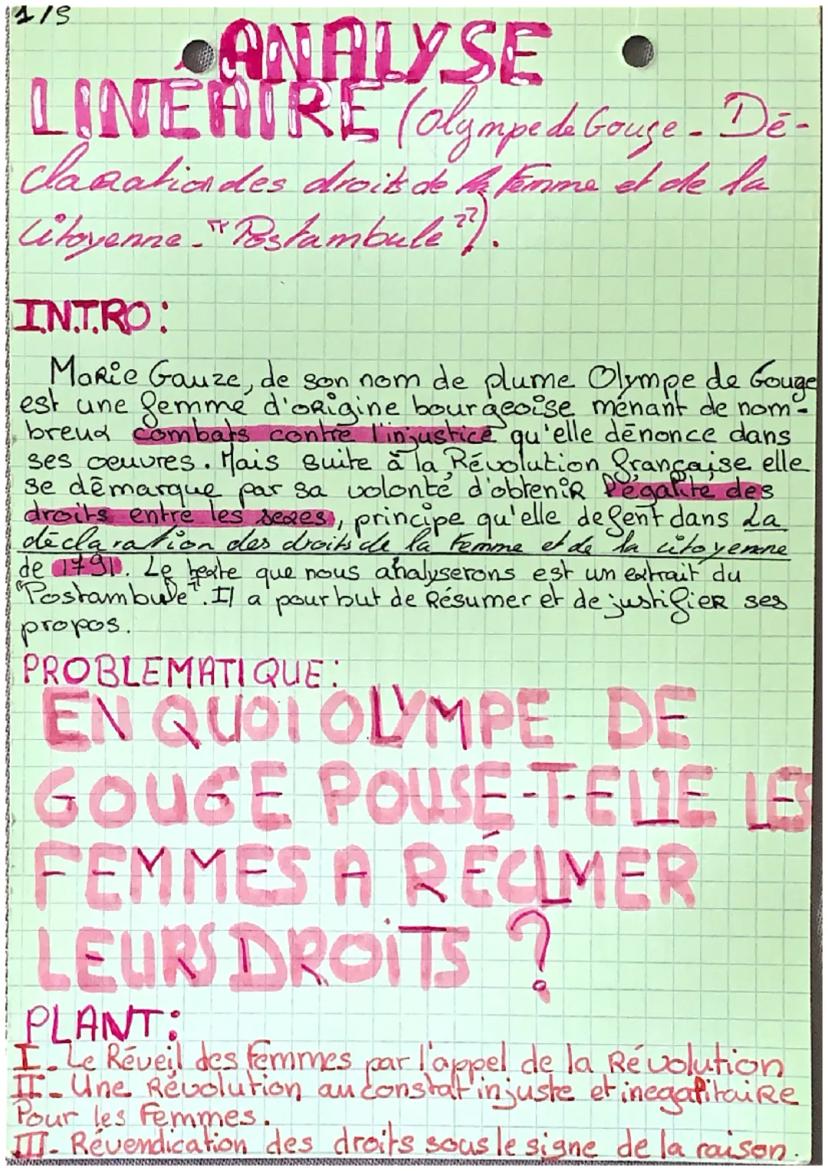 1/5
ANALYSE
LINÉAIRE (Olympe de Gouge - Dé-
claration des droits de la Femme et de la
Citoyenne - "Postambule").
INTRO:
Marie Gauze, de son nom de plume Olympe de Gouge
est une femme d'origine bourgeoise menant de nom-
breux combats contre l'injustice qu'elle dénonce dans
ses oeuvres. Mais suite à la Révolution française elle
se démarque par sa volonté d'obtenir l'égalité des
droits entre les sexes, principe qu'elle défent dans La
déclaration des droits de la Femme et de la citoyenne
de 1791. Le texte que nous analyserons est un extrait du
"Postambule". Il a pour but de résumer et de justifier ses
propos.
PROBLEMATIQUE:
EN QUOI OLYMPE DE
GOUGE POUSE-T-ELLE LES
FEMMES A RÉCLMER
LEURS DROITS ?
PLANT:
I - Le Réveil des Femmes par l'appel de la Révolution
II - Une Révolution au constat injuste et inegalitaire
Pour les Femmes.
III - Révendication des droits sous le signe de la raison.